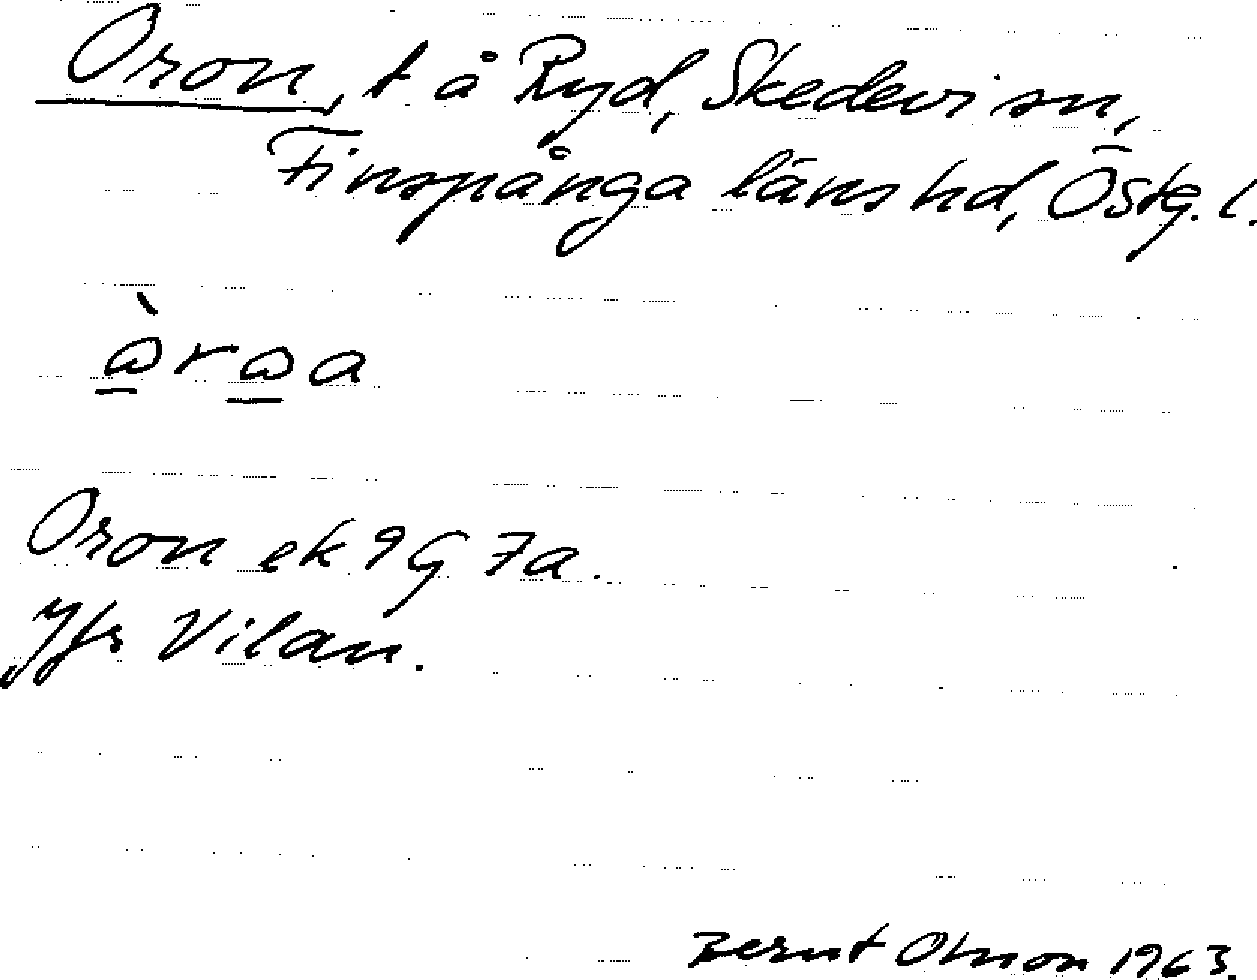 Oron, t å Ryd, Skedevi sn,
Finspånga läns hd, Östg. l.
Oron ek 9G 7a.
Jfr Vilan.
Bernt Olsson 1963.